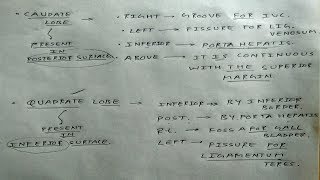 • CAUDATE LOBE
PRESENT IN POSTERIOR SURFACE.
• RIGHT → GROOVE FOR IVC.
• LEFT → FISSURE FOR LIG. VENOSUM
• INFERIOR → PORTA HEPATIS.
• ABOVE → IT IS CONTINUOUS
WITH THE SUPERIOR
MARGIN.
• QUADRATE LOBE
PRESENT IN
INFERIOR SURFACE.
INFERIOR → BY INFERIOR
BORDER.
POST. → BY PORTA HEPATIS
→ FOSSA FOR GALL
BLADDER.
LEFT → FISSURE FOR
LIGAMENTUM
TERES.